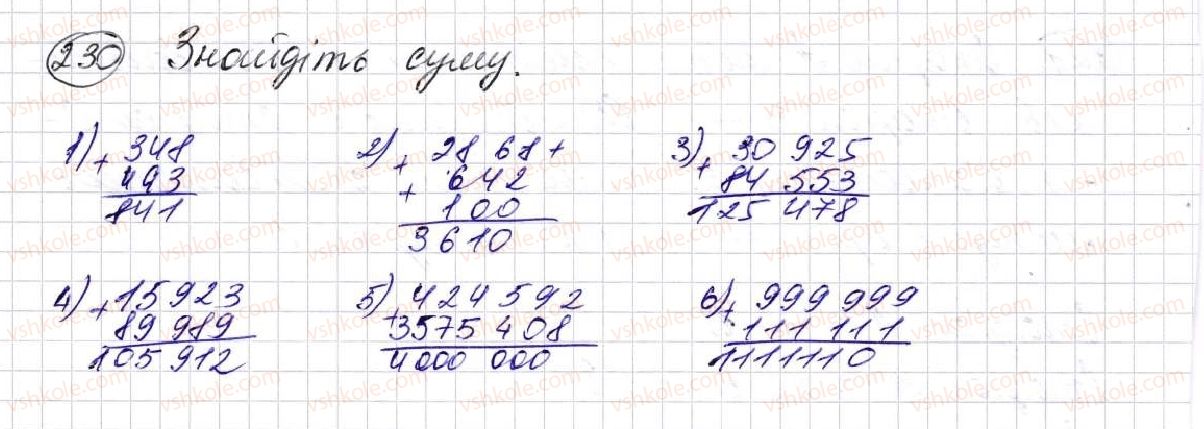 230 Знайдіть суму.
1) + 348
493
841
2) + 28 68 +
+ 642
100
3610
3) + 30 925
84 553
125 478
4) + 15 923
89 989
105 912
5) + 424 592
3575 408
4000 000
6) + 999 999
111 111
1111110